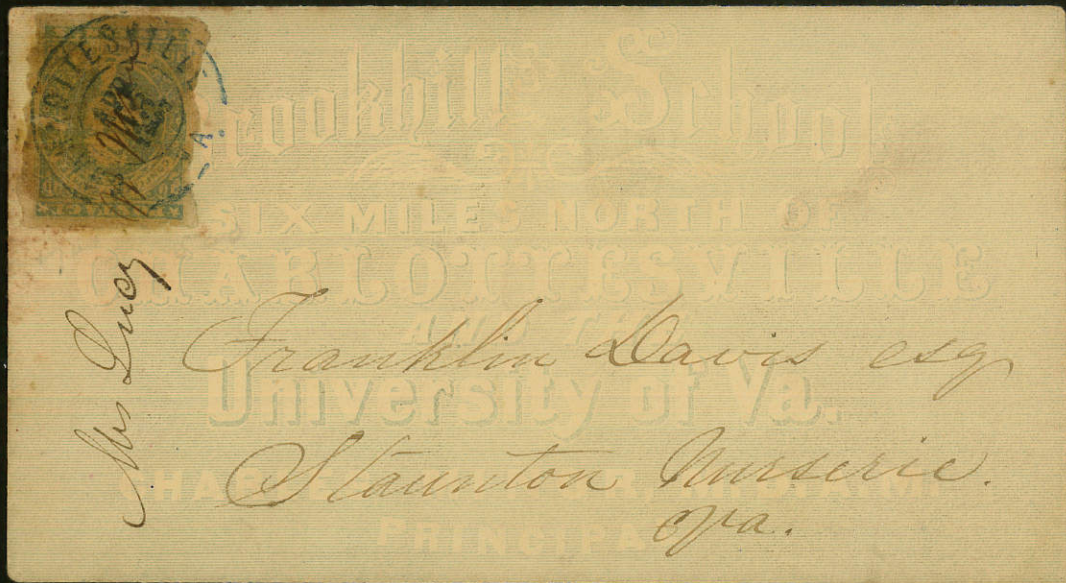 CHARLOTTESVILLE
VA.
Brookhill School
SIX MILES NORTH OF
CHARLOTTESVILLE
AND THE
University of Va.
PRINCIPAL
Mrs Lucy
Franklin Davis esq
Staunton Nurserie.
Va.